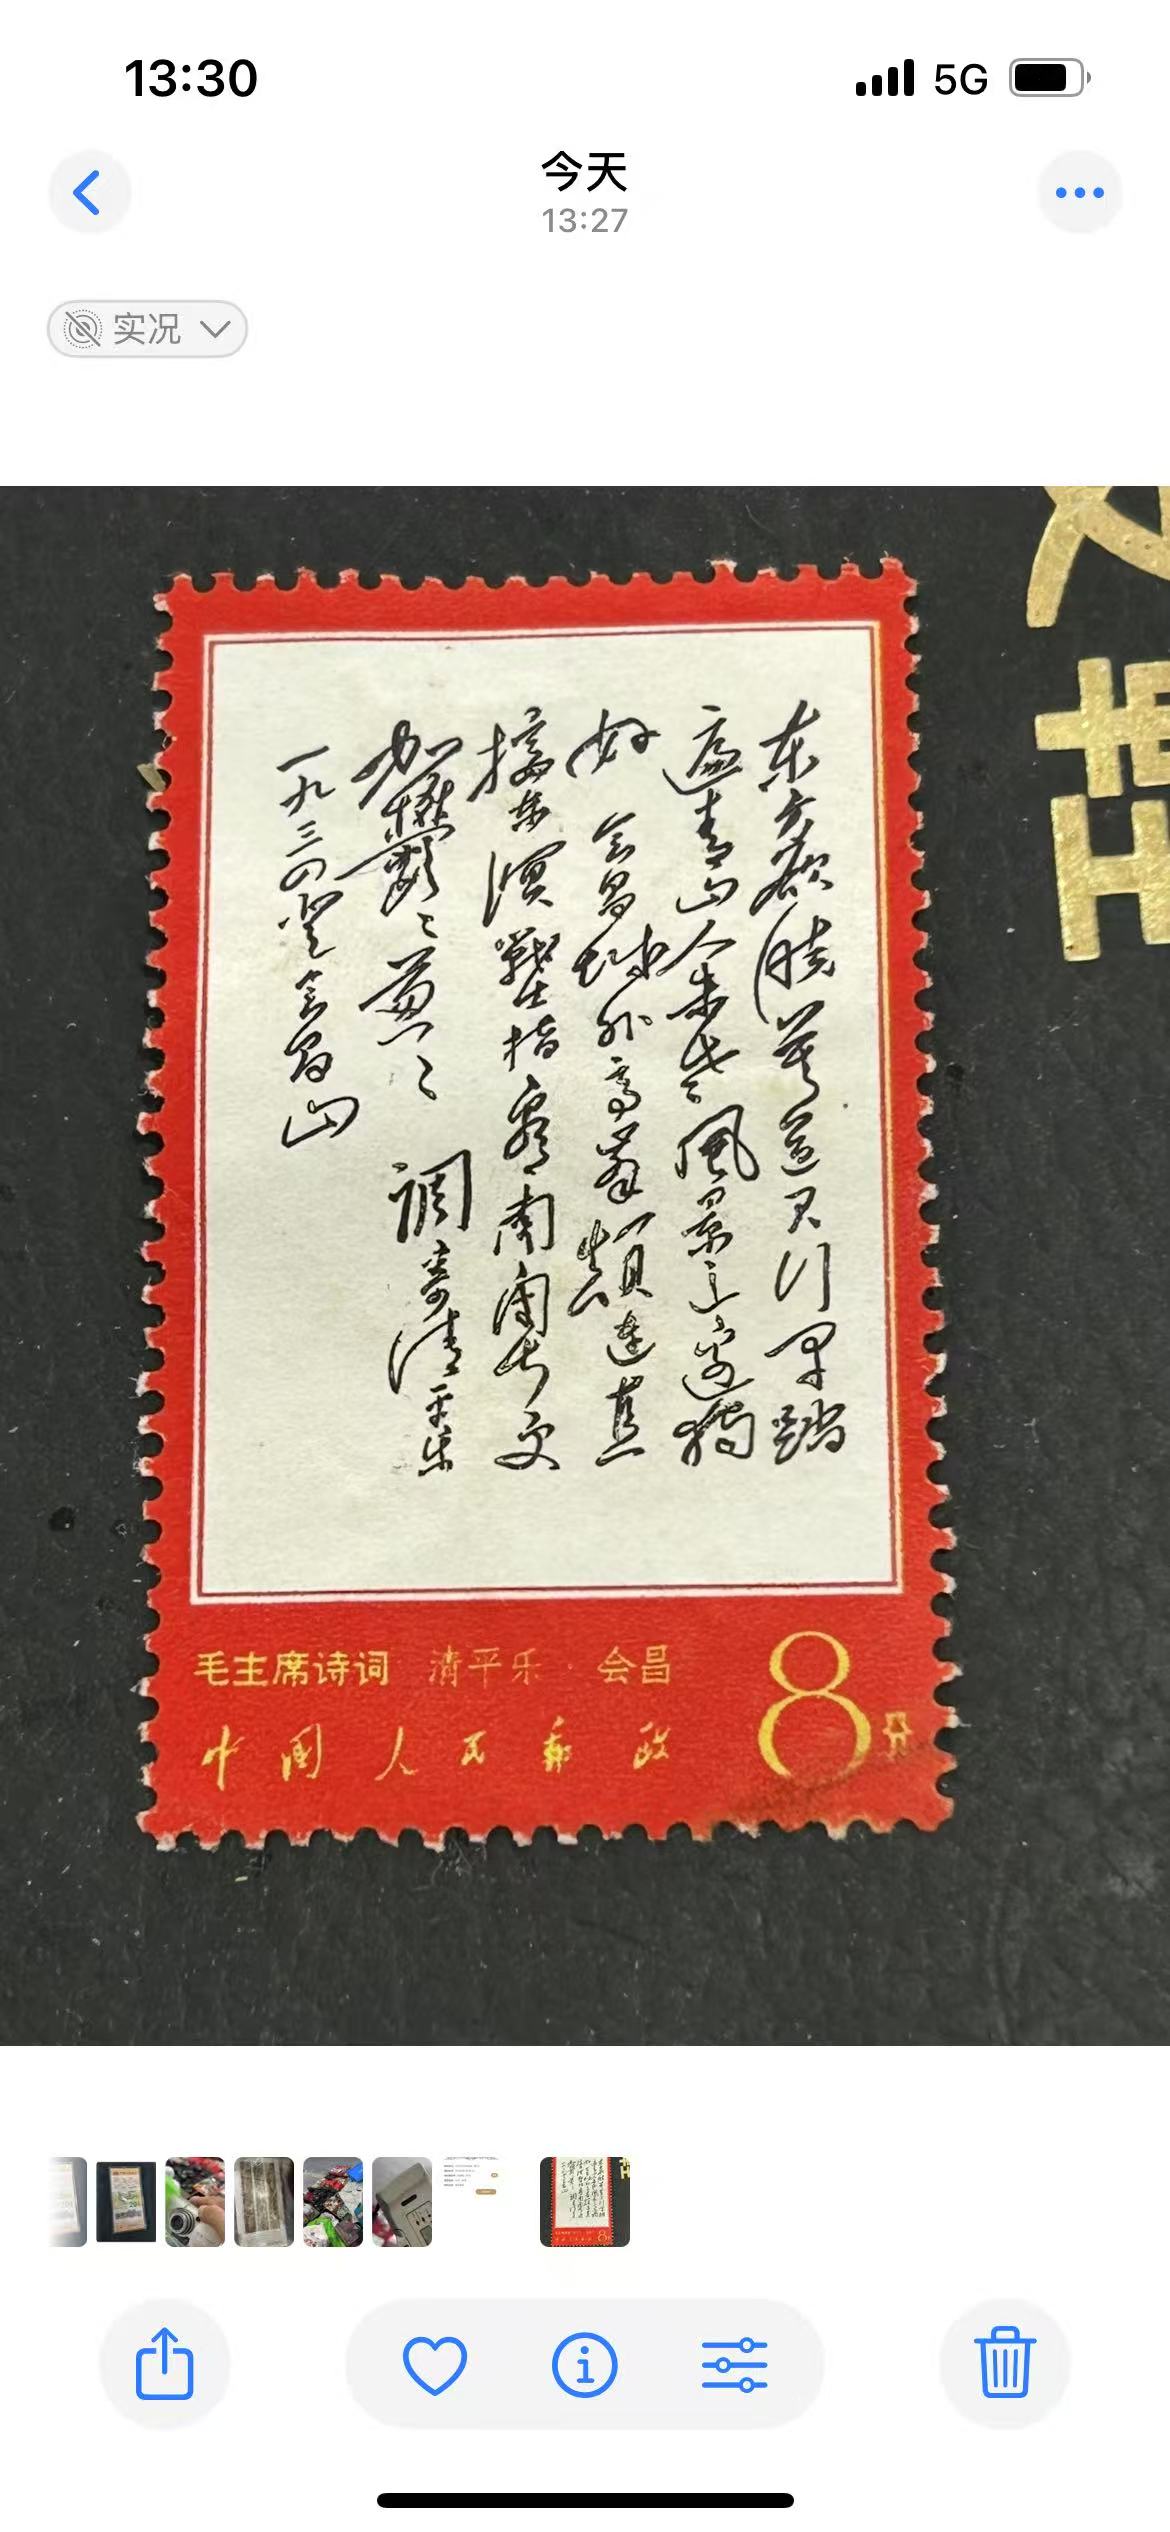 13:30
5G
今天
13:27
实况
东方欲晓莫道君行早踏
遍青山人未老風景这边獨
好 会昌城外高峯顛連直
接东溟戰士指看南粤更
加鬱〻葱〻 调寄清平乐
一九三四登会昌山
毛主席诗词 清平乐·会昌
8分
中国人民邮政